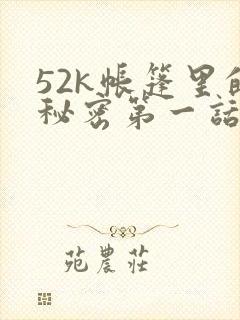 52k帳篷里的
秘密第一話
苑農莊